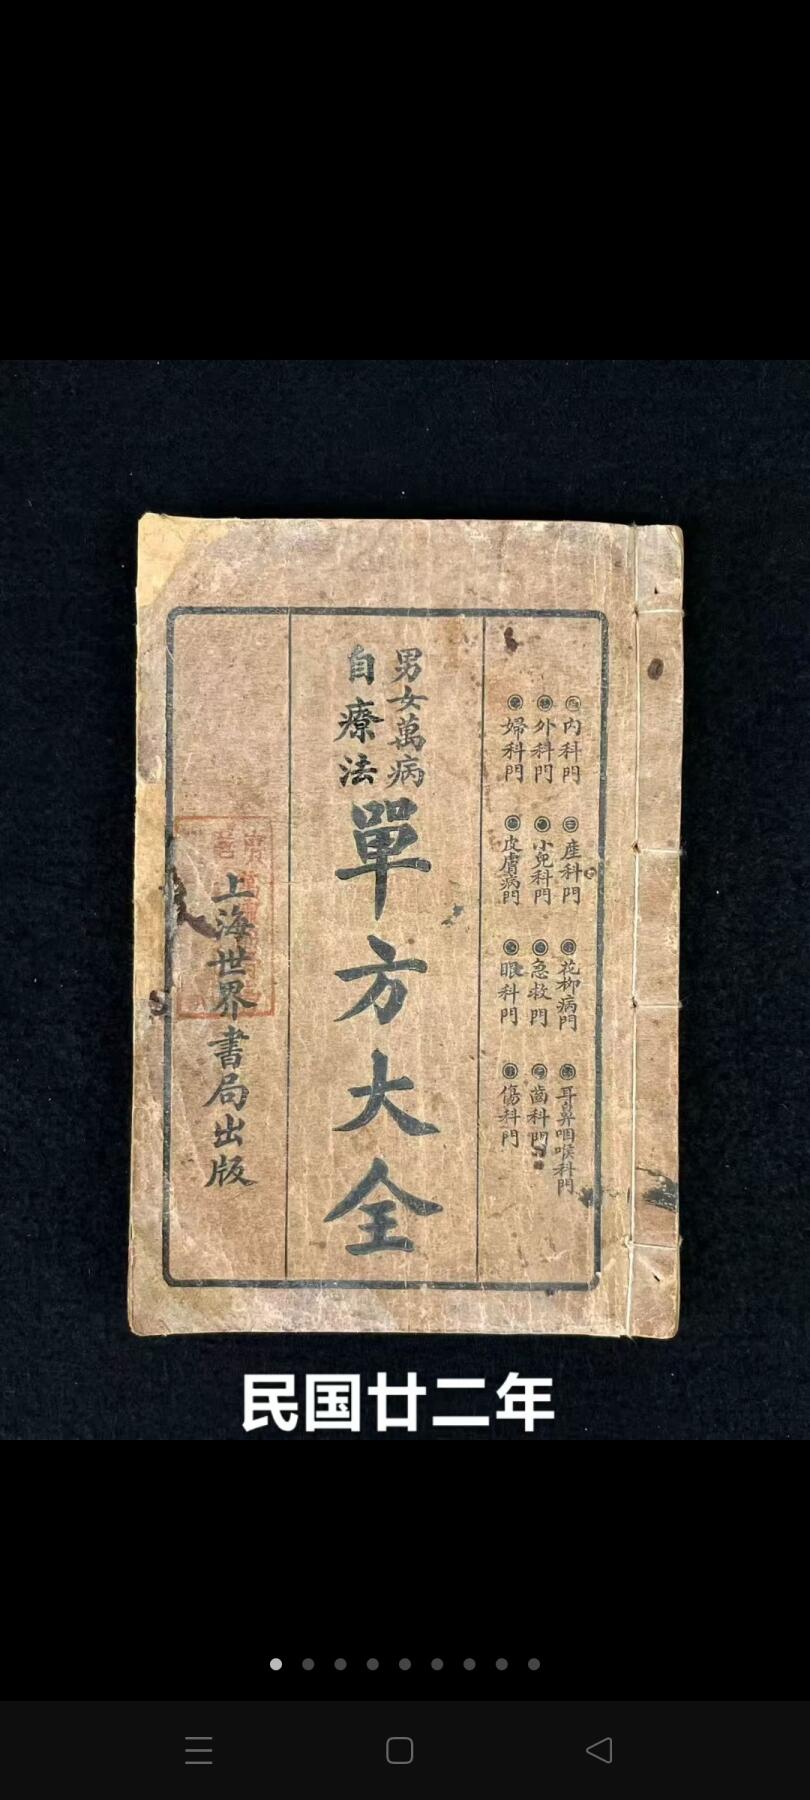 內科門
外科門
婦科門
產科門
小兒科門
皮膚病門
花柳病門
急救門
眼科門
耳鼻咽喉科門
齒科門
傷科門
男女萬病
自療法
單方大全
上海世界書局出版
民国廿二年